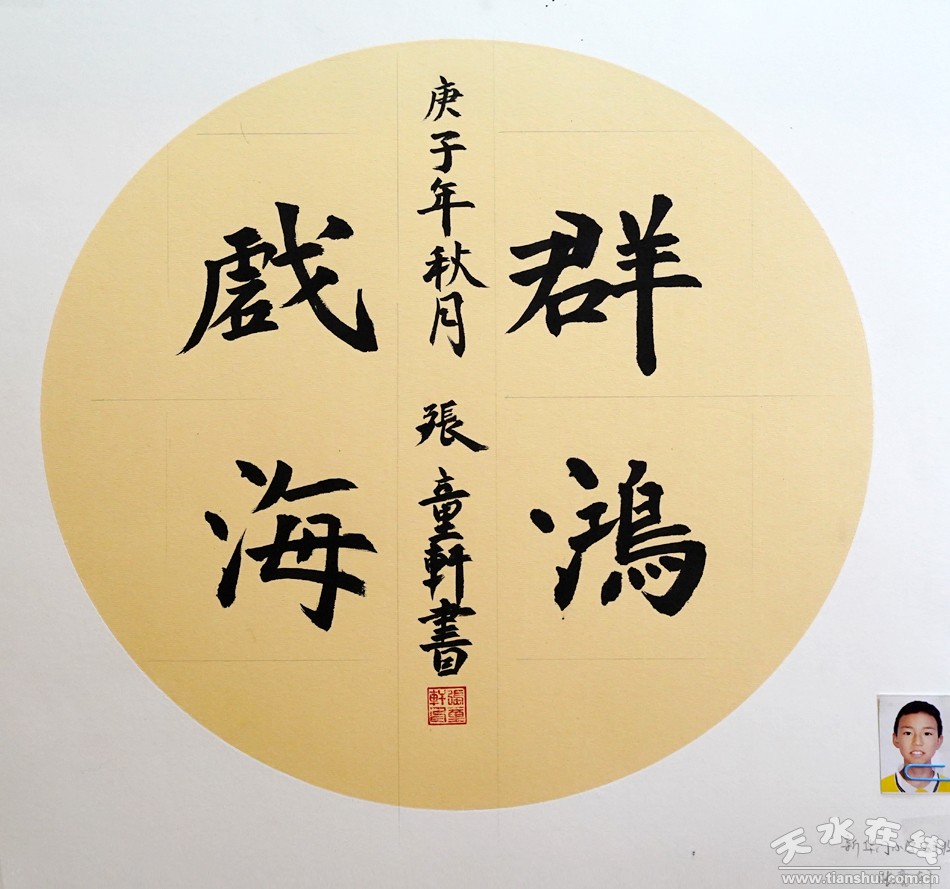 群鴻
戲海
庚子年秋月 張童軒書
張童軒
天水在线
www.tianshui.com.cn